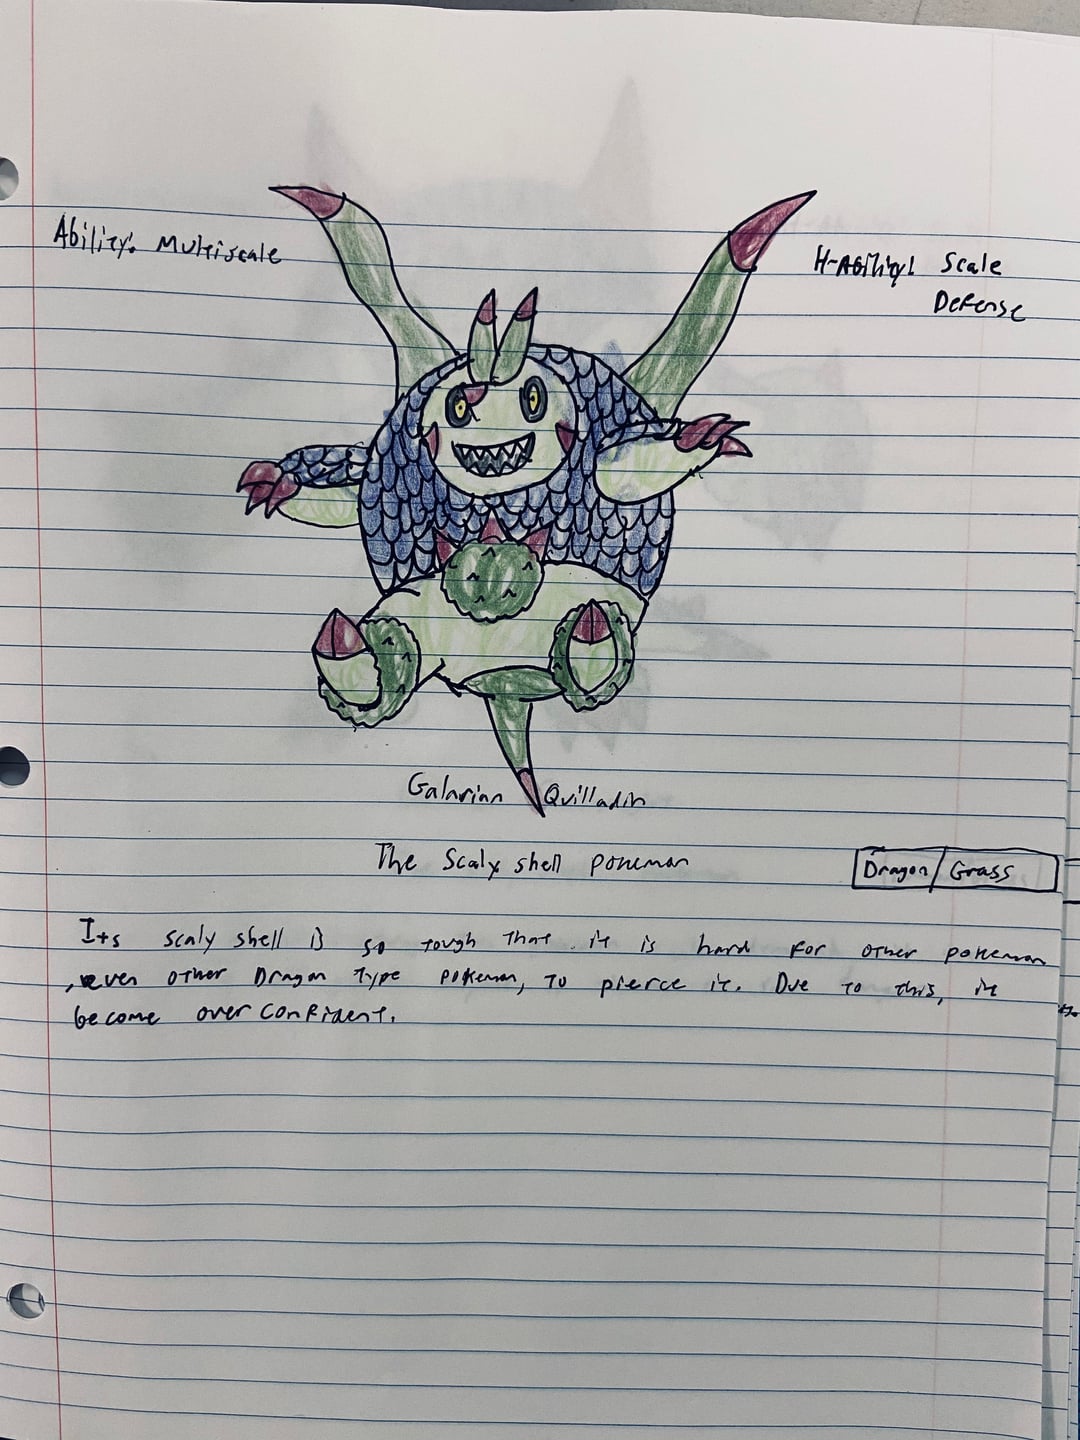 Ability: Multiscale
H-Ability: Scale
Defense
Galarian Quilladin
The Scaly shell Pokemon
Dragon/Grass
Its scaly shell is so tough that it is hard for other pokemon
, even other Dragon Type pokemon, to pierce it. Due to this, it
become over confident.